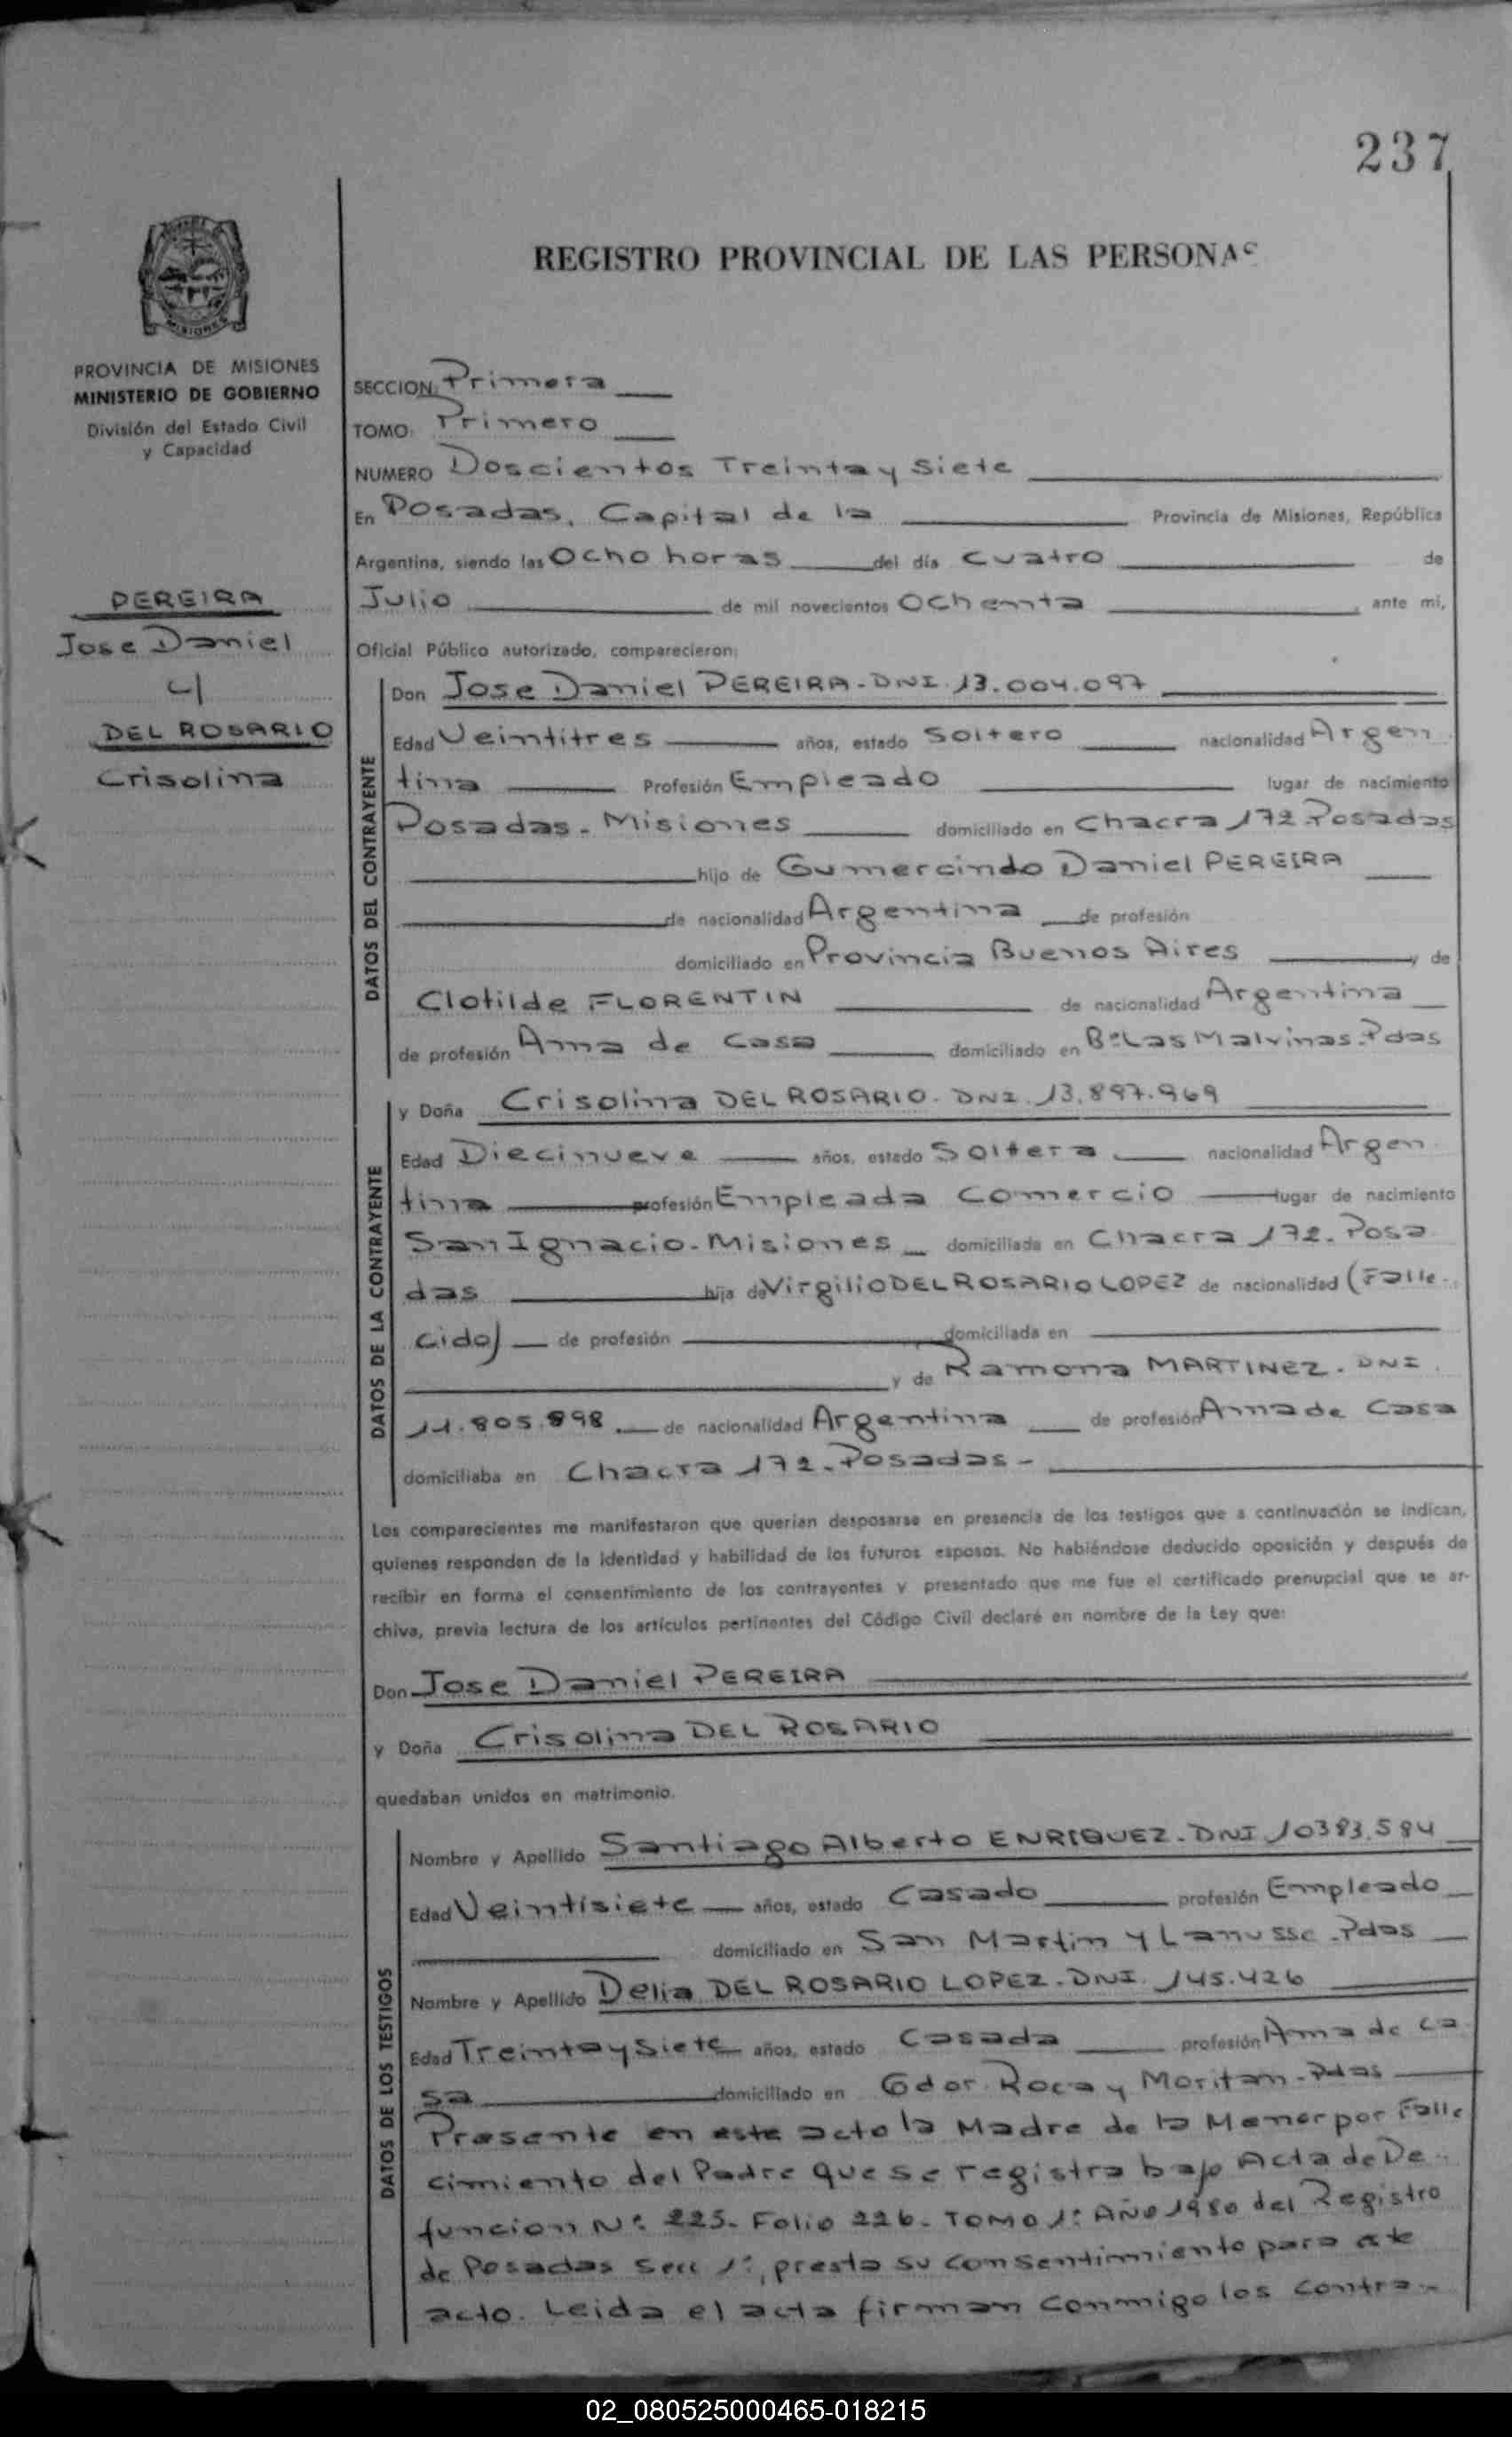 237
REGISTRO PROVINCIAL DE LAS PERSONAS
MISIONES
PROVINCIA DE MISIONES
MINISTERIO DE GOBIERNO
División del Estado Civil
y Capacidad
PEREIRA
Jose Daniel
c/
DEL ROSARIO
Crisolina
SECCION: Primera
TOMO: Primero
NUMERO Doscientos Treinta y Siete
En Posadas, Capital de la Provincia de Misiones, República
Argentina, siendo las Ocho horas del día Cuatro de
Julio de mil novecientos Ochenta, ante mi,
Oficial Público autorizado, comparecieron:
DATOS DEL CONTRAYENTE
Don Jose Daniel PEREIRA - DNI. 13.004.097
Edad Veintitres años, estado Soltero nacionalidad Argen
tina Profesión Empleado lugar de nacimiento
Posadas - Misiones domiciliado en Chacra 172. Posadas
hijo de Gumercindo Daniel PEREIRA
de nacionalidad Argentina de profesión
domiciliado en Provincia Buenos Aires y de
Clotilde FLORENTIN de nacionalidad Argentina
de profesión Ama de Casa domiciliado en Bº Las Malvinas. Pdas
DATOS DE LA CONTRAYENTE
y Doña Crisolina DEL ROSARIO. DNI. 13.897.969
Edad Diecinueve años, estado Soltera nacionalidad Argen
tina profesión Empleada Comercio lugar de nacimiento
San Ignacio - Misiones domiciliada en Chacra 172. Posa
das hija de Virgilio DEL ROSARIO LOPEZ de nacionalidad (Falle-
cido) de profesión domiciliada en
y de Ramona MARTINEZ. DNI.
11.805.898 de nacionalidad Argentina de profesión Ama de Casa
domiciliaba en Chacra 172. Posadas -
Los comparecientes me manifestaron que querían desposarse en presencia de los testigos que a continuación se indican,
quienes responden de la identidad y habilidad de los futuros esposos. No habiéndose deducido oposición y después de
recibir en forma el consentimiento de los contrayentes y presentado que me fue el certificado prenupcial que se ar-
chiva, previa lectura de los artículos pertinentes del Código Civil declaré en nombre de la Ley que:
Don Jose Daniel PEREIRA
y Doña Crisolina DEL ROSARIO
quedaban unidos en matrimonio.
DATOS DE LOS TESTIGOS
Nombre y Apellido Santiago Alberto ENRIQUEZ - DNI 10383.584
Edad Veintisiete años, estado Casado profesión Empleado
domiciliado en San Martin y Lanusse - Pdas
Nombre y Apellido Delia DEL ROSARIO LOPEZ - DNI. 145.426
Edad Treinta y Siete años, estado Casada profesión Ama de Ca
sa domiciliado en Gdor. Roca y Moritan - Pdas
Presente en este acto la Madre de la Menor por Falle
cimiento del Padre que se registra bajo Acta de De-
funcion Nº 225 - Folio 226 - TOMO 1º AÑO 1980 del Registro
de Posadas Secc 1º, presta su consentimiento para ate
acto. Leida el acta firman conmigo los contra-
02_080525000465-018215